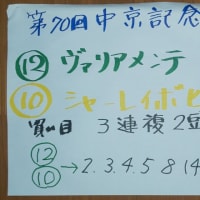 第70回中京記念
⑫ ヴァリアメンテ
⑩ シャーレイポビ
買い目 3連複2頭
⑫
⑩ →2.3.4.5.8(14